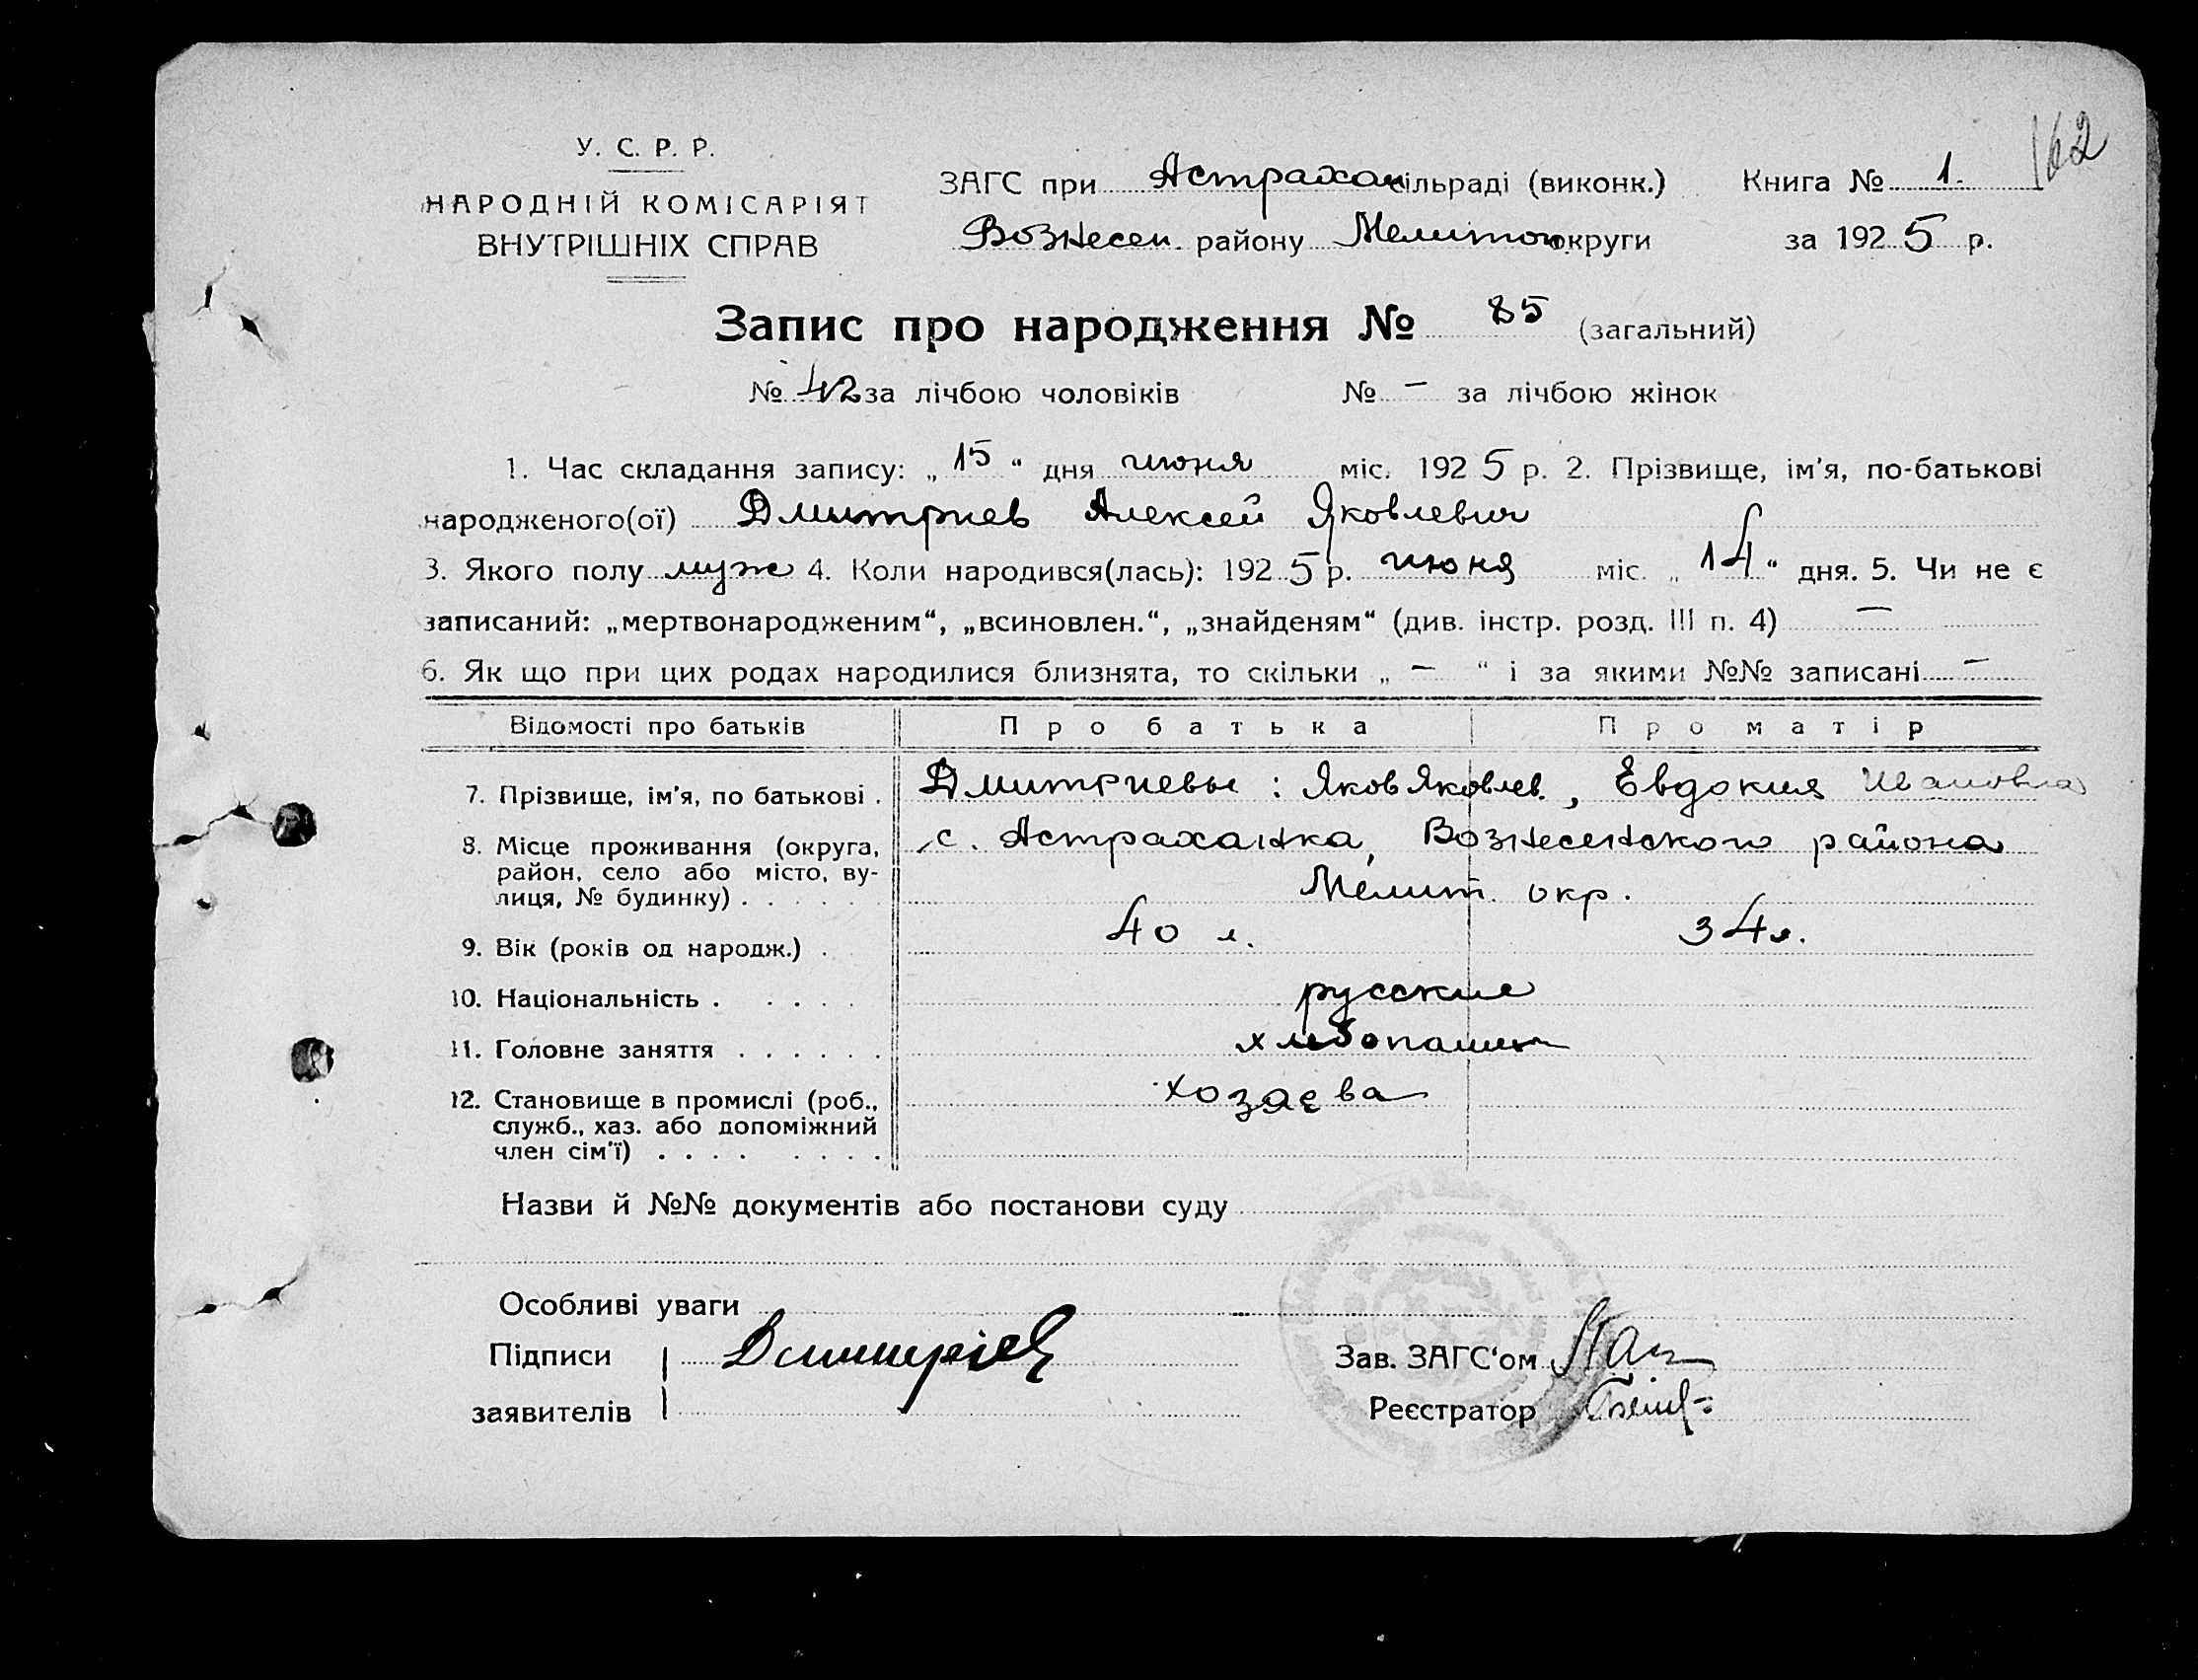 162
У. С. Р. Р.
НАРОДНІЙ КОМІСАРІЯТ
ВНУТРІШНІХ СПРАВ
ЗАГС при Астрахан сільраді (виконк.) Книга № 1.
Вознесен. району Мелитоп округи за 1925 р.
Запис про народження № 85 (загальний)
№ 42 за лічбою чоловіків № — за лічбою жінок
1. Час складання запису: „15“ дня июня міс. 1925 р. 2. Прізвище, ім'я, по-батькові
народженого(ої) Дмитриев Алексей Яковлевич
3. Якого полу муж 4. Коли народився(лась): 1925 р. июня міс. „14“ дня. 5. Чи не є
записаний: „мертвонародженим“, „всиновлен.“, „знайденям“ (див. інстр. розд. III п. 4) —
6. Як що при цих родах народилися близнята, то скільки „ — “ і за якими №№ записані —
Відомості про батьків Про батька Про матір
7. Прізвище, ім'я, по батькові . Дмитриевы : Яков Яковлев. , Евдокия Ивановна
8. Місце проживання (округа, с. Астраханка, Вознесенского района
район, село або місто, ву-
лиця, № будинку) . . . . . . Мелит. окр.
9. Вік (років од народж.) . 40 л. 34 л.
10. Національність . . . . . русские
11. Головне заняття . . . . . . хлебопашц
12. Становище в промислі (роб., хозяева
служб., хаз. або допоміжний
член сім'ї) . . . . . . . .
Назви й №№ документів або постанови суду
Особливі уваги
Підписи Дмитріев Зав. ЗАГС'ом
заявителів Реєстратор